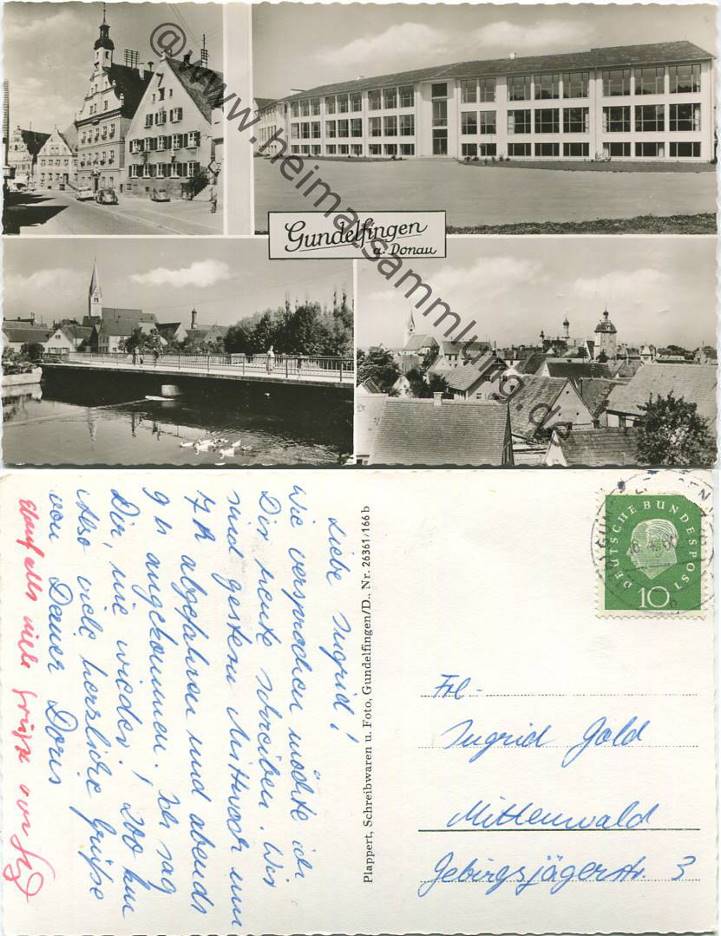 @ www.heimatsammlung.de
Gundelfingen
a. Donau
Liebe Ingrid!
Wie versprochen möchte ich
Dir heute schreiben. Wir
sind gestern Mittwoch um
7 h abgefahren und abends
9 h angekommen. Ich sag
Dir nie wieder! 200 km
Also viele herzliche Grüße
von Deiner Doris
ebenfalls viele Grüße von
Plappert, Schreibwaren u. Foto, Gundelfingen/D., Nr. 26361/166 b
DEUTSCHE BUNDESPOST
10
Frl.
Ingrid Gold
Mittenwald
Gebirgsjägerstr. 3